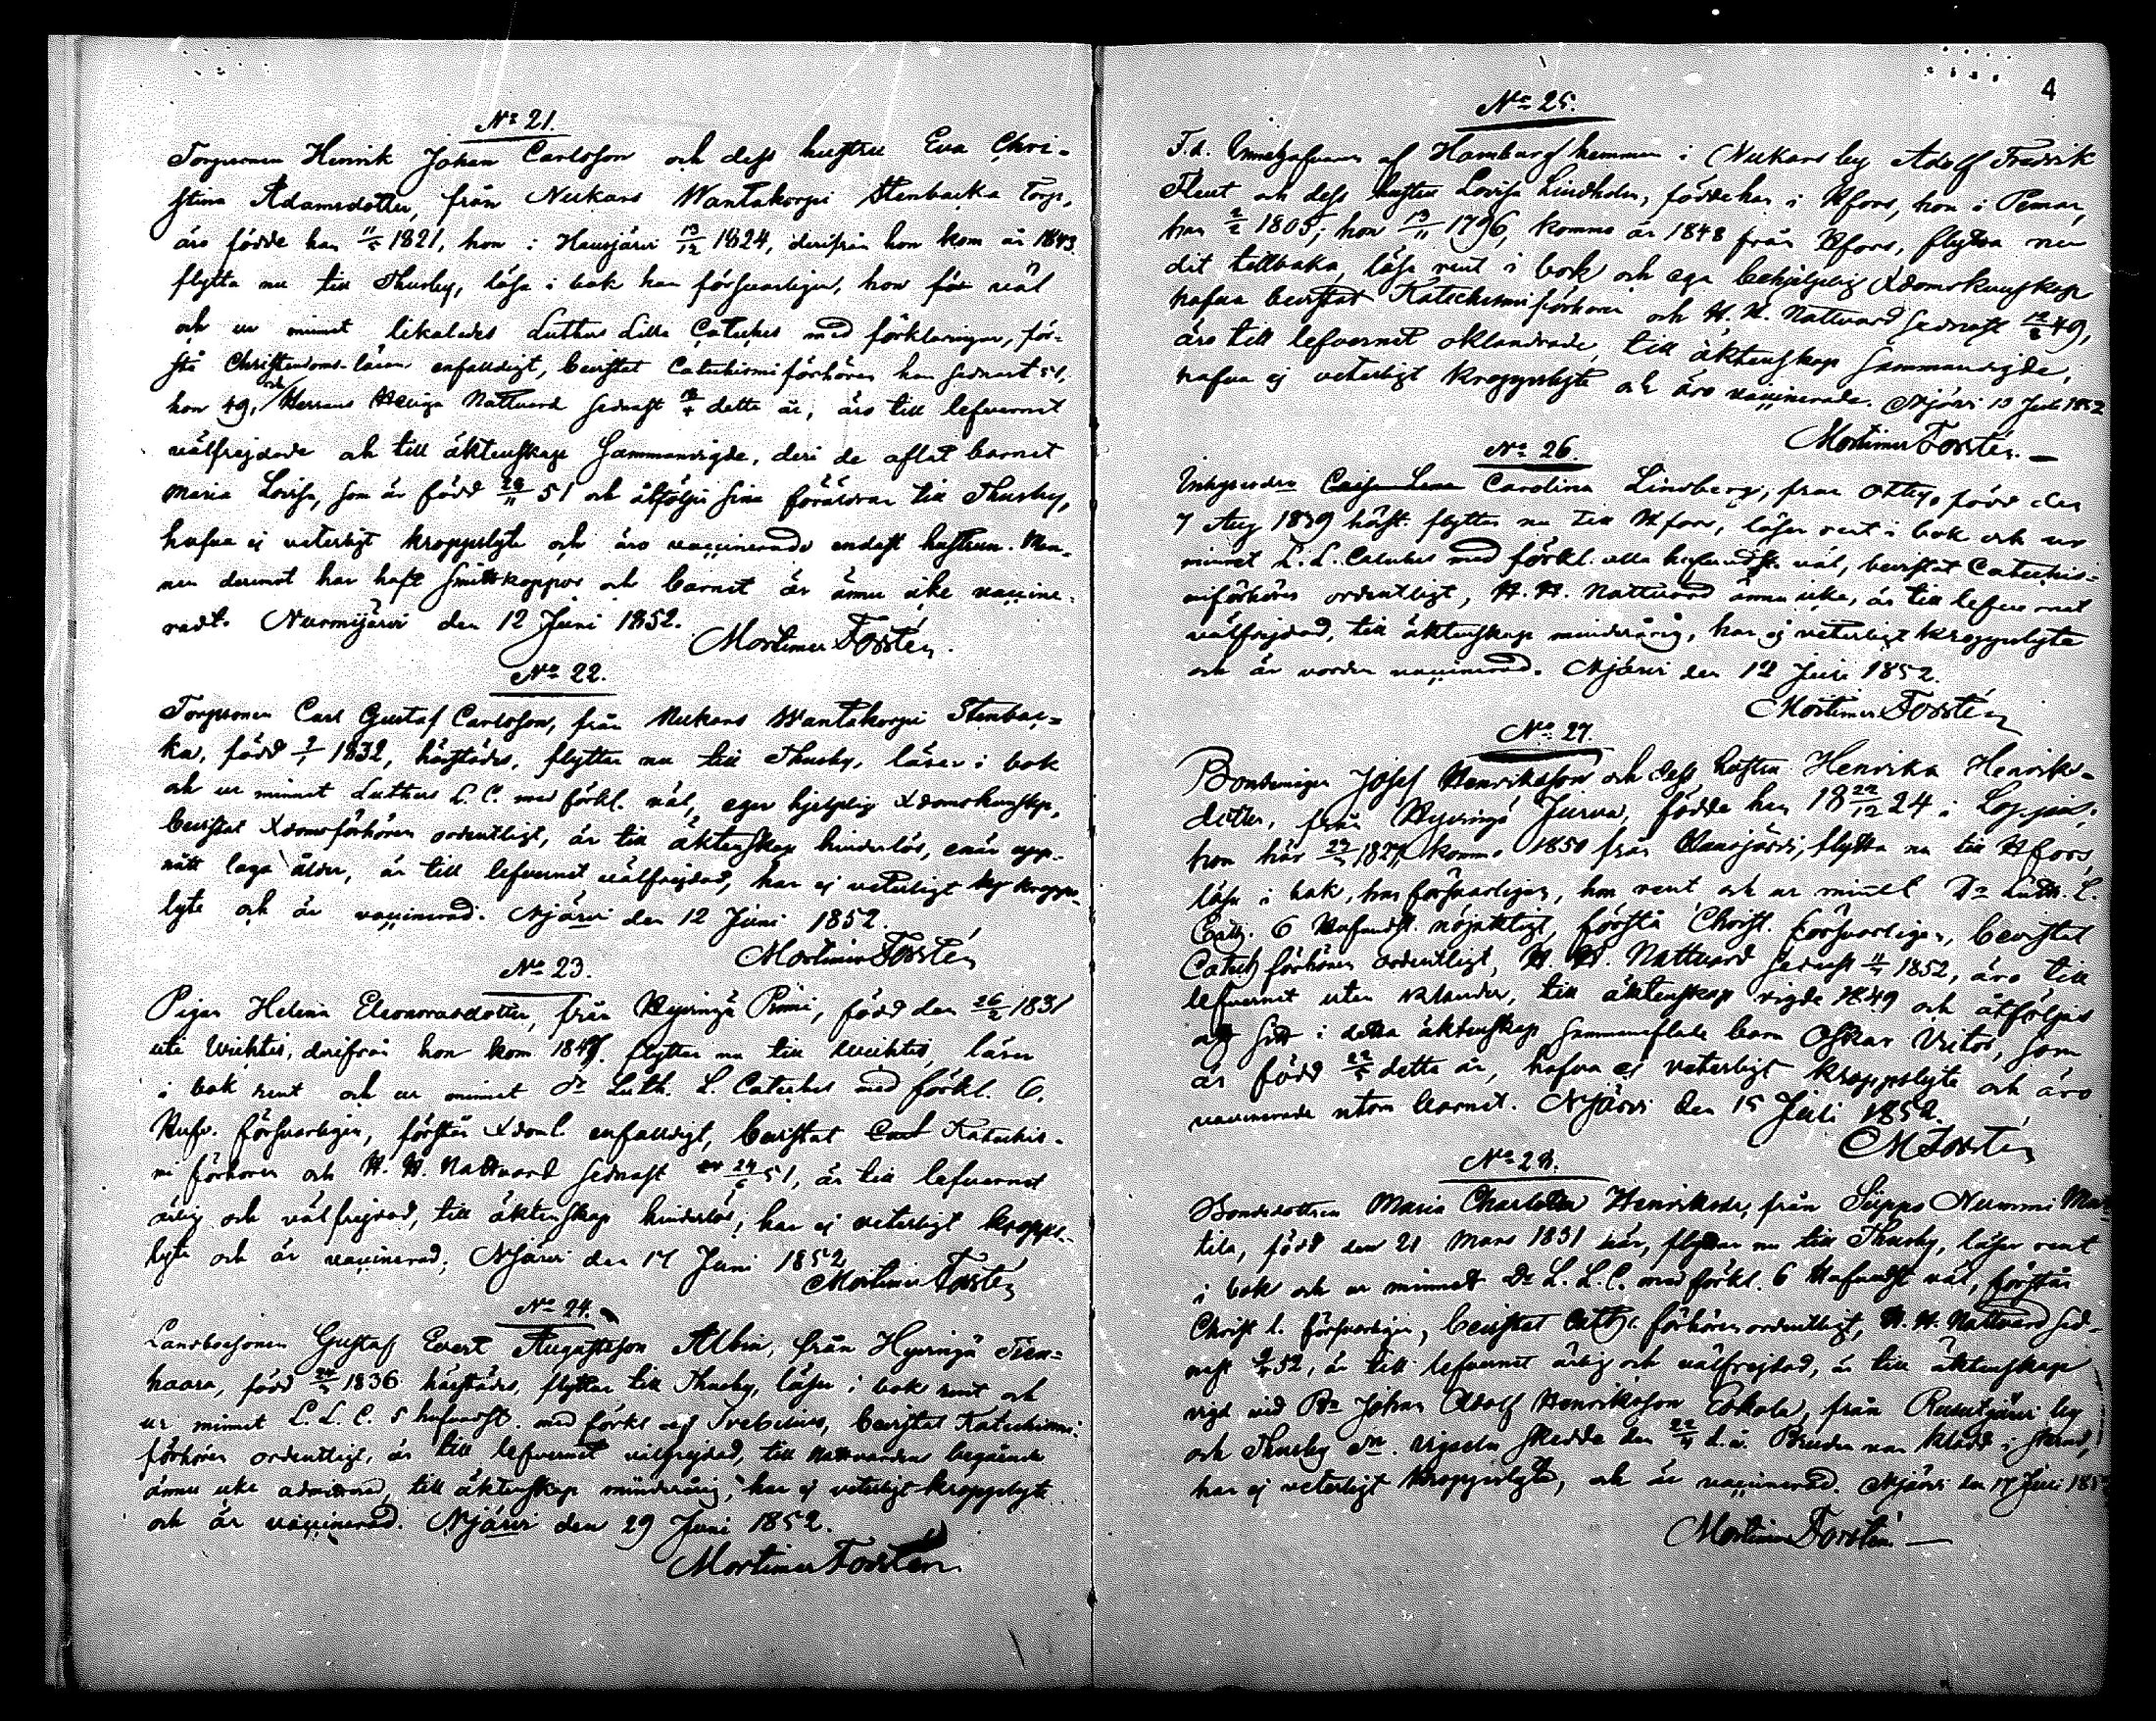 No 21.
Torpsonen Henrik Johan Carlsson och dess hustru Eva Chri-
stina Adamsdotter, från Nukars Wantakorpi Stenbacka Torp,
äro födde han 11/5 1821, hon i Hausjärvi 13/12 1824, derifrån hon kom år 1843.
flytta nu till Thusby, läsa i bok han försvarligen, hon väl
och ur minnet likaledes Luthers Lilla Cateches med förklaringen, för-
stå Christendoms-läran enfaldigt, bevistat Catechismiförhören han sednast 51,
hon 49, och Herrans Heliga Nattvard sednast dette år, äro till lefvernet
välfrejdade och till äktenskap sammanvigde, deri de aflat barnet
Maria Lovisa, som är född 51 och åtföljer sina föräldrar till Thusby,
hafva ej veterligt kroppslyte och äro vaccinerade endast hustrun. Man-
nen deremot har haft smittkoppor och barnet är ännu icke vaccine-
radt. Nurmijärvi den 12 Juni 1852.
Mortimer Forstén.
No 22.
Torpsonen Carl Gustaf Carlsson, från Nukars Wantakorpi Stenbac-
ka, född 1832, härstädes, flyttar nu till Thusby, läser i bok
och ur minnet Luthers L. C. med förkl. väl, eger hjelplig Xdomskunskap,
bevistat Xdomsförhören ordentligt, är till äktenskap hinderlös, enär upp-
nått laga ålder, är till lefvernet välfrejdad, har ej veterligt kropps-
lyte och är vaccinerad. Njärvi den 12 Juni 1852.
Mortimer Forstén
No 23.
Pigan Helena Eleonorasdotter, från Hyvingä, född den 26/2 1831
uti Wichtis, derifrån hon kom flyttar nu till Wichtis, läser
i bok rent och ur minnet Dr Luth. L. Cateches med förkl. 6.
Hufv. försvarligen, förstår Xdoml. enfaldigt, bevistat Katechis-
mi förhören och H. H. Nattvard sednast 24/6 51, är till lefvernet
ärlig och välfrejdad, till äktenskap hinderlös, har ej veterligt kropps-
lyte och är vaccinerad. Njärvi den 17 Juni 1852
Mortimer Forstén
No 24.
Landbosonen Gustaf Evert Augustsson Albin, från Hyvingä Tien-
haara, född 1836 härstädes, flyttar till Thusby, läser i bok rent och
ur minnet L. L. C. 5 hufvudst. med förkl. af Svebelius, bevistat Katechismi-
förhören ordentligt, är till lefvernet välfrejdad, till Nattvardens begående
ännu icke admitterad, till äktenskap minderårig, har ej veterligt kroppslyte
och är vaccinerad. Njärvi den 29 Juni 1852.
Mortimer Forstén
4
No 25.
F.d. Innehafvaren af Hamburg hemman i Nukars by Adolf Fredrik
och dess hustru Lovisa Lindholm, födde han i Hfors, hon i Pemar,
han 1805, hon 13/11 1796, komne år 1848 från Hfors, flytta nu
dit tillbaka, läsa rent i bok och ega behjelplig Xdomskunskap
hafva bevistat Katechismiförhören och H. H. Nattvard sednast 49,
äro till lefvernet oklandrade, till äktenskap sammanvigde,
hafva ej veterligt kroppslyte och äro vaccinerade. Njärvi Juli 1852
Mortimer Forstén.
No 26.
Inhysesdr Caisa Lena Carolina Lindberg, från född den
7 Aug 1839 härst. flyttar nu till Hfors, läser rent i bok och ur
minnet L. L. Cateches med förkl. alla hufvudst. väl, bevistat Catechis-
miförhören ordentligt, H. H. Nattvard ännu icke, är till lefvernet
välfrejdad, till äktenskap minderårig, har ej veterligt kroppslyte
och är vorden vaccinerad. Njärvi den 12 Juli 1852.
Mortimer Forstén
No 27.
Bondemågen Josef Henriksson och dess hustru Henrika Henriks-
dotter, från Hyvingä Jurva, födde han 18 22/12 24 i Loppis,
hon här komne 1850 från Hausjärvi, flytta nu till Hfors,
läsa i bok, han försvarligen, hon rent och ur minnet Dr Luth. L.
Catech. 6 Hufvudst. nöjaktigt, förstå Christ. försvarligen, bevistat
Catech förhören ordentligt, H. H. Nattvard sednast 1852, äro till
lefvernet utan klander, till äktenskap vigde 1849 och åtföljas
af sitt i detta äktenskap sammanaflade barn Oskar Victor, som
är född dette år, hafva ej veterligt kroppslyte och äro
vaccinerade utom barnet. Njärvi den 15 Juli 1852.
M Forstén
No 28.
Bondedottren Maria Charlotta Henriksdr, från Seppo Nummi Mat-
tila, född den 21 Mars 1831 här, flyttar nu till Thusby, läser rent
i bok och ur minnet Dr L. L. C. med förkl. 6 Hufvudst väl, förstår
Christ l. försvarligen, bevistat Catech. förhören ordentligt, H. H. Nattvard sed-
nast 52, är till lefvernet ärlig och välfrejdad, är till äktenskap
vigd vid Johan Adolf Henriksson Eskola, från Rusutjärvi by
och Thusby Sn. Vigseln skedde den d.å. Bruden var klädd i
har ej veterligt kroppslyte, och är vaccinerad. Njärvi den 17 Juli 185
Mortimer Forstén